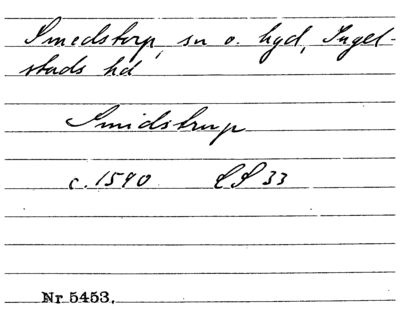 Smedstorp, sn o. hgd, Ingel-
stads hd
Smidstrup
c. 1590 LS 33
Nr 5453.